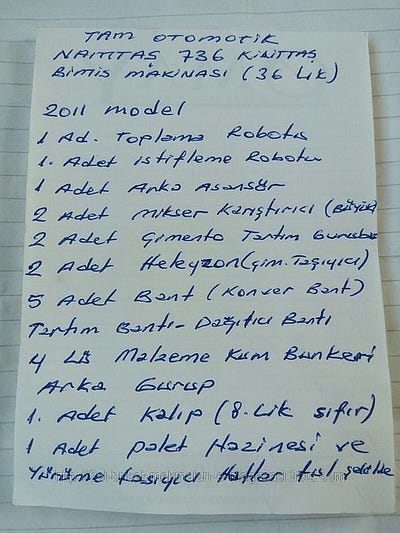 TAM OTOMOTİK
NAMTAŞ 736 KİLİTTAŞ
BİMİS MAKİNASI (36 Lık)
2011 model
1 Ad. Toplama Robotu
1. Adet istifleme Robotu
1 Adet Arka Asansör
2 Adet Mikser Karıştırıcı (Büyük)
2 Adet Çimento Tartım Gurubu
2 Adet Heleyzon (Çim. Taşıyıcı)
5 Adet Bant (Konver Bant)
Tartım Bantı - Dağıtıcı Bantı
4 Lü Malzeme Kum Bunkeri
Arka Gurup
1. Adet Kalıp (8.Lik sıfır)
1 Adet palet Hazinesi ve
Yürüme taşıyıcı Hatları